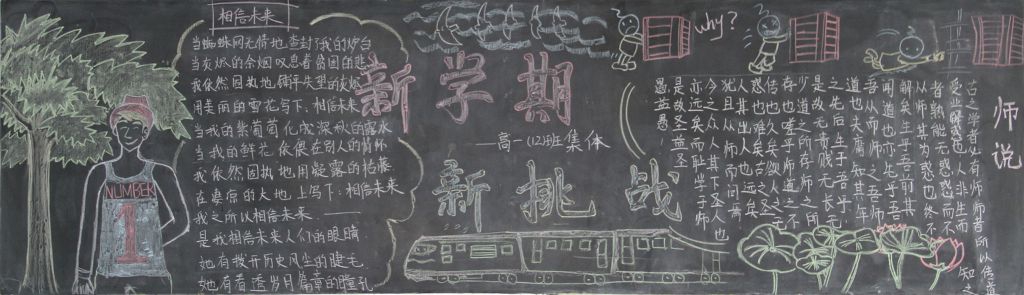 相信未来
当蜘蛛网无情地查封了我的炉台
当灰烬的余烟叹息着贫困的悲
我依然固执地铺平失望的灰烬
用美丽的雪花写下：相信未来
当我的紫葡萄化成深秋的露水
当我的鲜花依偎在别人的情怀
我依然固执地用凝露的枯藤
在凄凉的大地上写下：相信未来
我之所以相信未来
是我相信未来人们的眼睛
她有拨开历史风尘的睫毛
她有看透岁月篇章的瞳孔
新学期
高一(12)班集体
新挑战
NUMBER
1
why?
师说
古之学者必有师师者所以传道
受业解惑也人非生而知之
者孰能无惑惑而不
从师其为惑也终不
解矣生乎吾前其
闻道也亦先乎吾
吾从而师之吾师
道也夫庸知其年
之先后生于吾乎
是故无贵无贱无长无
少道之所存师之所
存也嗟乎师道之不
传也久矣欲人之无
惑也难矣古之圣
人其出人也远矣
犹且从师而问焉
今之众人其下圣人也
亦远矣而耻学于师
是故圣益圣
愚益愚